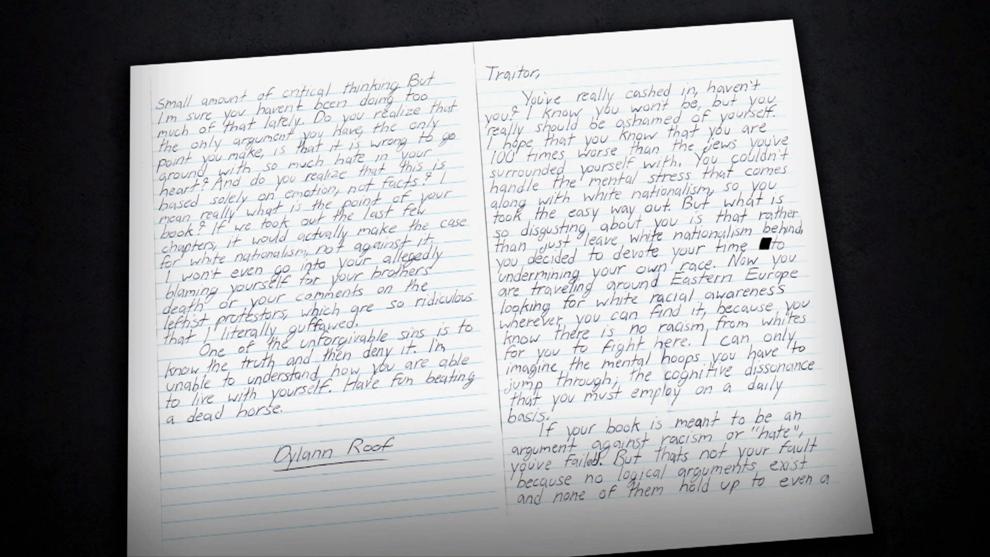 Traitor,
You've really cashed in, haven't
you? I know you won't be, but you
really should be ashamed of yourself.
I hope that you know that you are
100 times worse than the jews you've
surrounded yourself with. You couldn't
handle the mental stress that comes
along with white nationalism, so you
took the easy way out. But what is
so disgusting about you is that rather
than just leave white nationalism behind,
you decided to devote your time to
undermining your own race. Now you
are traveling around Eastern Europe
looking for white racial awareness
wherever you can find it, because you
know there is no racism from whites
for you to fight here. I can only
imagine the mental hoops you have to
jump through, the cognitive dissonance
that you must employ on a daily
basis.
If your book is meant to be an
argument against racism or "hate",
youve failed. But thats not your fault
because no logical arguments exist
and none of them hold up to even a
small amount of critical thinking. But
I'm sure you haven't been doing too
much of that lately. Do you realize that
the only argument you have, the only
point you make, is that it is wrong to go
around with so much hate in your
heart? And do you realize that this is
based solely on emotion, not facts? I
mean really what is the point of your
book? If we took out the last few
chapters, it would actually make the case
for white nationalism, not against it.
I won't even go into your allegedly
blaming yourself for your brothers'
death or your comments on the
leftist protestors, which are so ridiculous
that I literally guffawed.
One of the unforgivable sins is to
know the truth and then deny it. I'm
unable to understand how you are able
to live with yourself. Have fun beating
a dead horse.
Dylann Roof